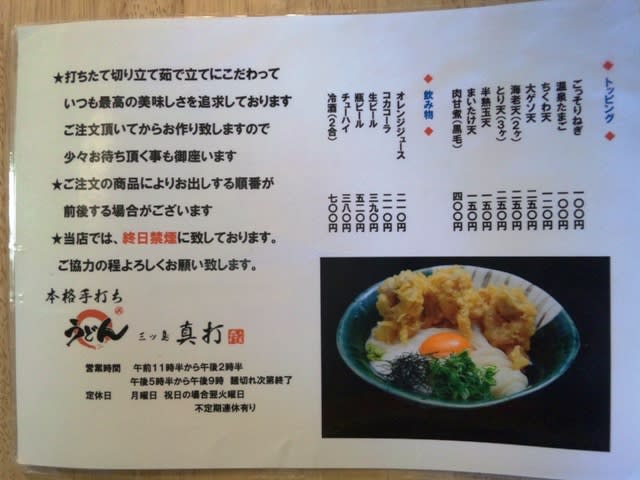 ◆トッピング◆
ごっそりねぎ 一〇〇円
温泉たまご 一〇〇円
ちくわ天 一二〇円
大ゲソ天 二五〇円
海老天(2ヶ) 二五〇円
とり天(3ヶ) 二五〇円
半熟玉天 一五〇円
まいたけ天 一五〇円
肉甘煮(黒毛) 四〇〇円
◆飲み物◆
オレンジジュース 二一〇円
コカコーラ 二一〇円
生ビール 三九〇円
瓶ビール 五二〇円
チューハイ 三八〇円
冷酒(2合) 七〇〇円
★打ちたて切り立て茹で立てにこだわって
いつも最高の美味しさを追求しております
ご注文頂いてからお作り致しますので
少々お待ち頂く事も御座います
★ご注文の商品によりお出しする順番が
前後する場合がございます
★当店では、終日禁煙に致しております。
ご協力の程よろしくお願い致します。
本格手打ち
うどん 三ツ島 真打
営業時間 午前11時半から午後2時半
午後5時半から午後9時 麺切れ次第終了
定休日 月曜日 祝日の場合翌火曜日
不定期連休有り